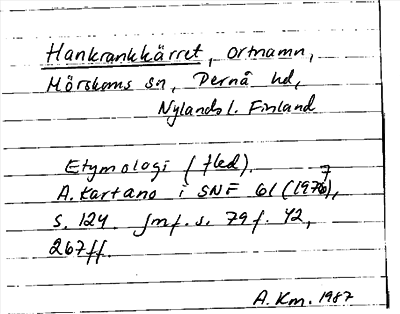 Hankrankkärret, ortnamn,
Mörskoms sn, Pernå hd,
Nylands l. Finland
Etymologi (fled).
A. Kartano i SNF 61 (1977),
s. 124. Jmf. s. 79 f. 42,
267 ff.
A. Km. 1987